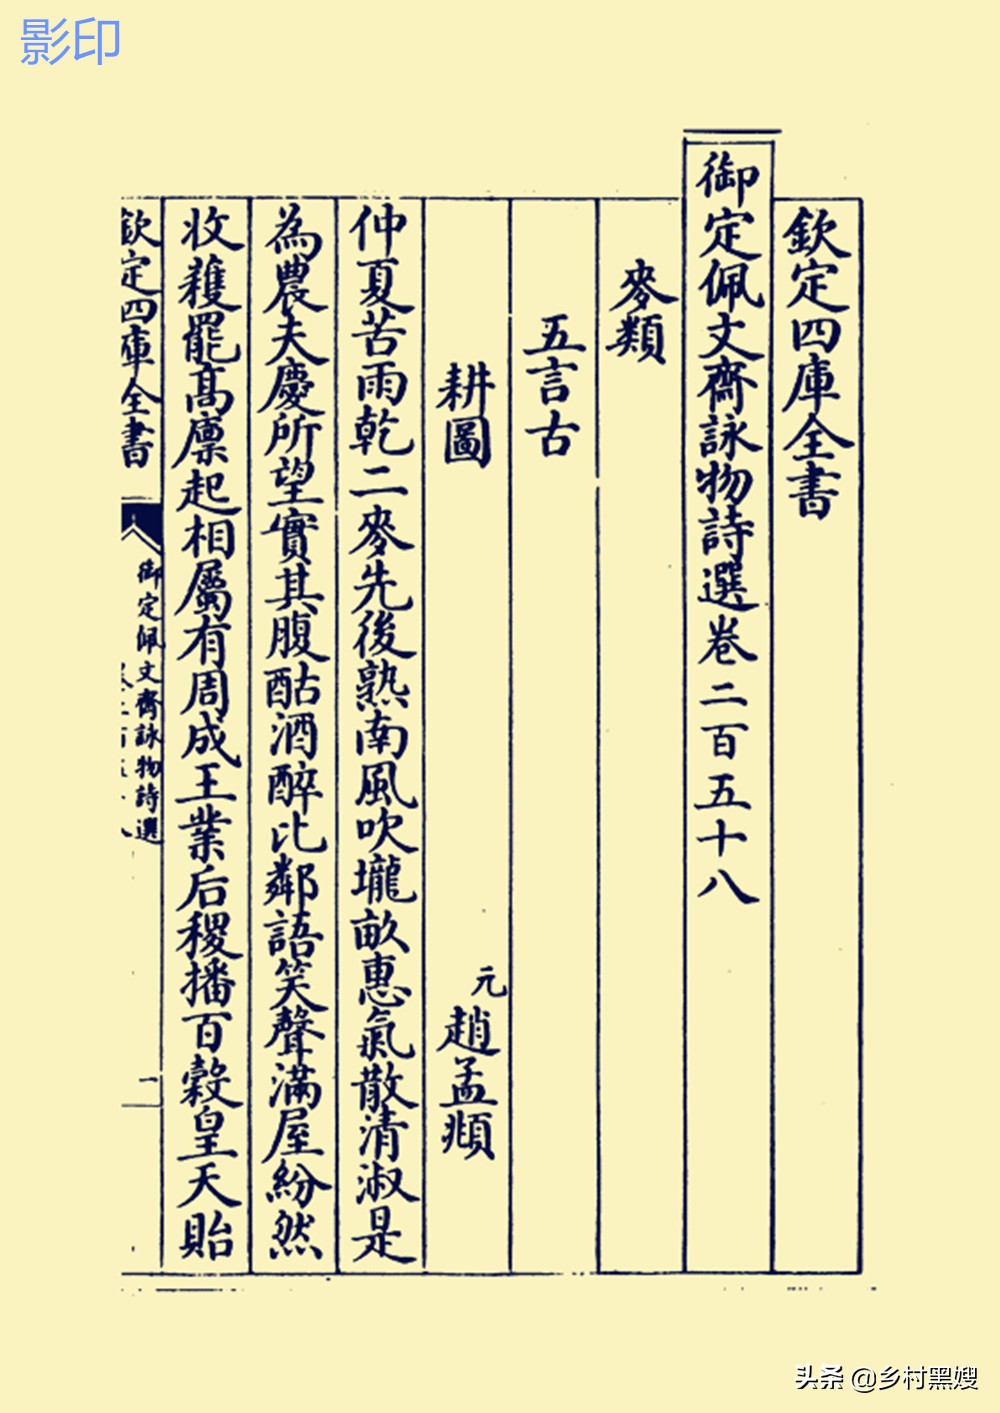 影印
欽定四庫全書
御定佩文齋詠物詩選卷二百五十八
麥類
五言古
耕圖
元
趙孟頫
仲夏苦雨乾二麥先後熟南風吹壠畝惠氣散清淑是
為農夫慶所望實其腹酤酒醉比鄰語笑聲滿屋紛然
收穫罷髙廪起相屬有周成王業后稷播百糓皇天貽
欽定四庫全書
御定佩文齋詠物詩選
一
头条 @乡村黑嫂